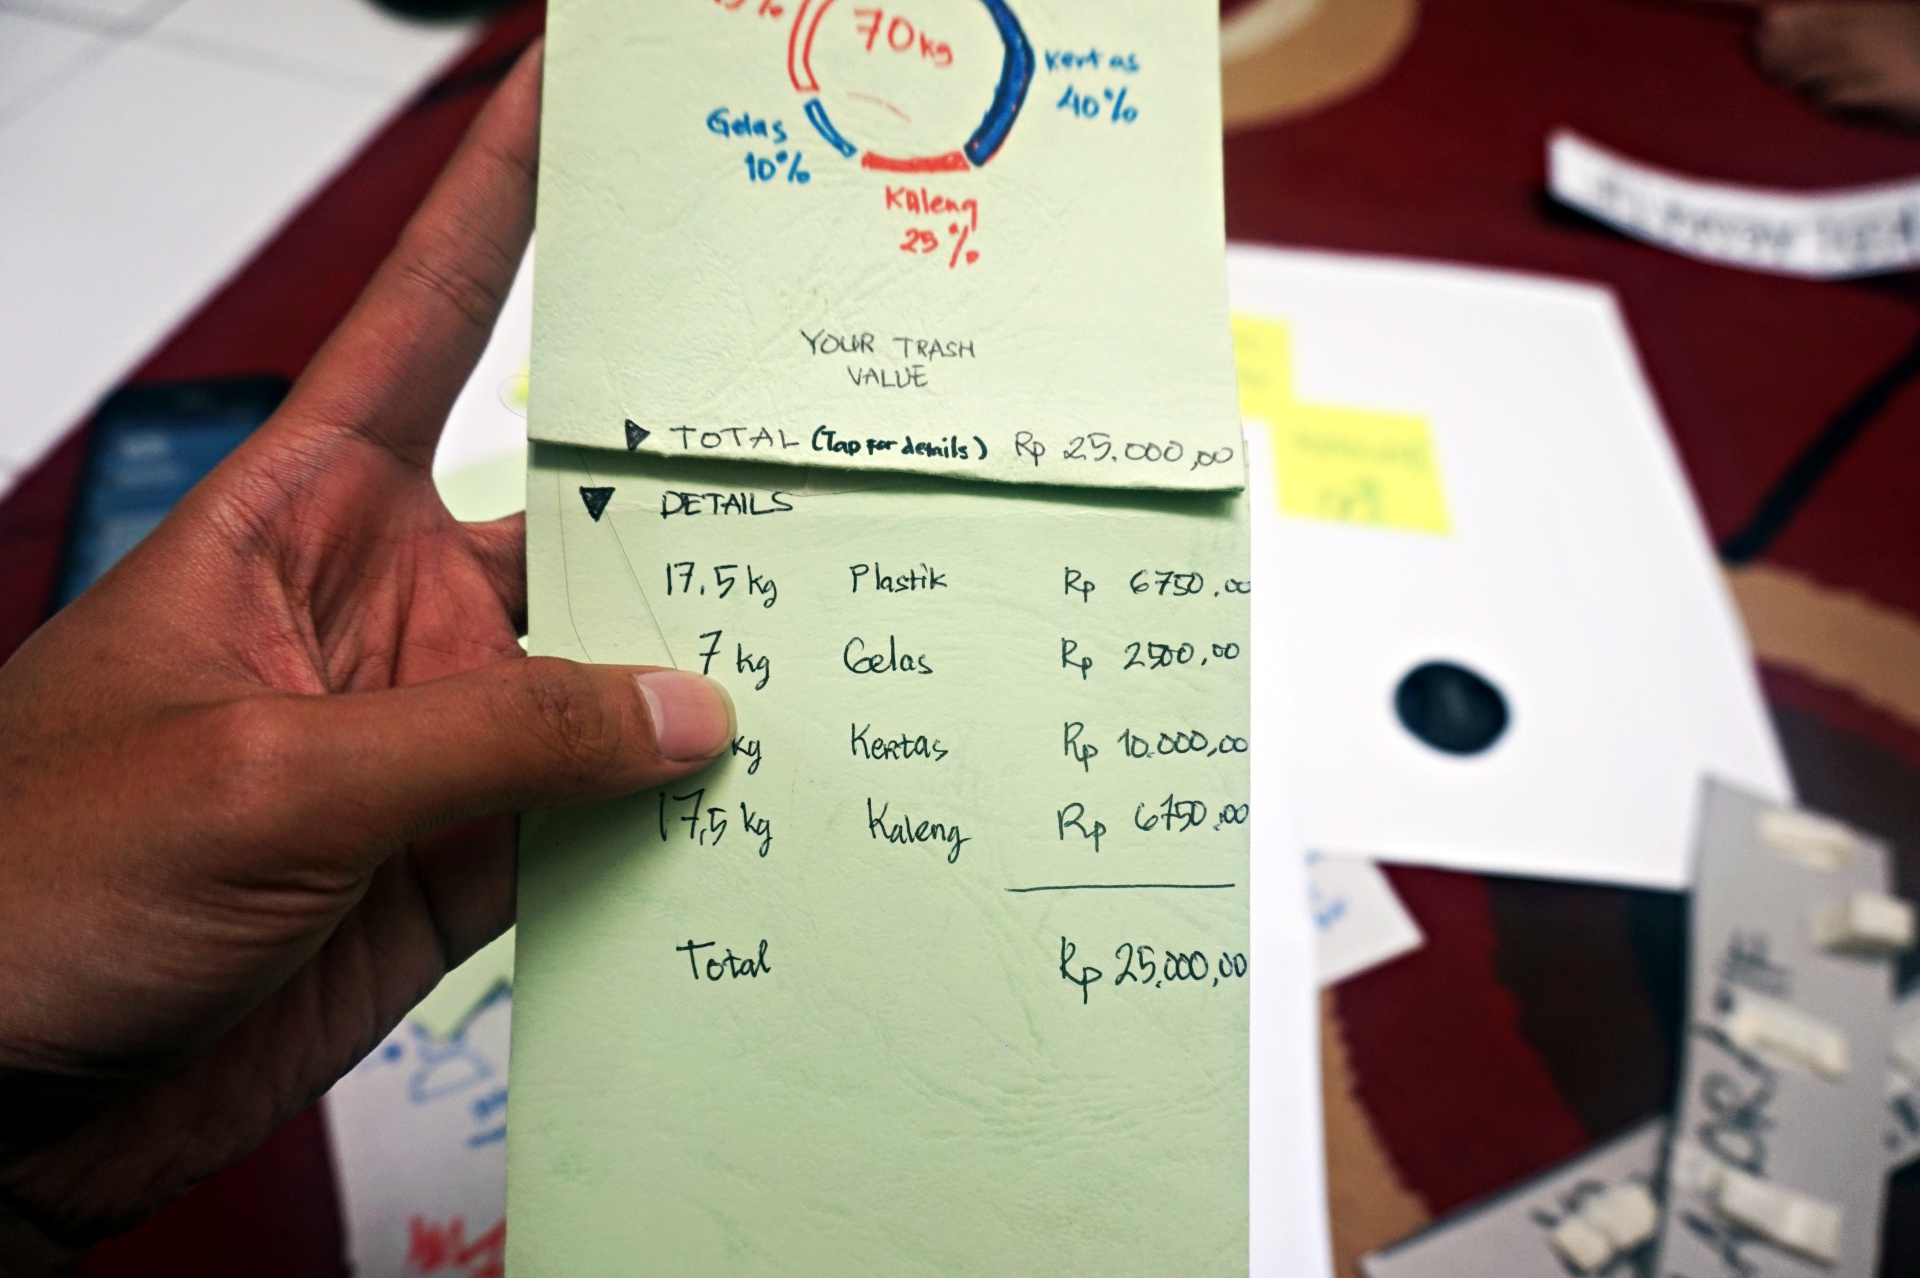 70kg
Kertas
40%
Gelas
10%
Kaleng
25%
YOUR TRASH
VALUE
TOTAL (Tap for details) Rp 25.000,00
DETAILS
17.5 kg Plastik Rp 6750.00
7 kg Gelas Rp 2500,00
kg Kertas Rp 10.000,00
17,5 kg Kaleng Rp 6750,00
Total Rp 25.000,00